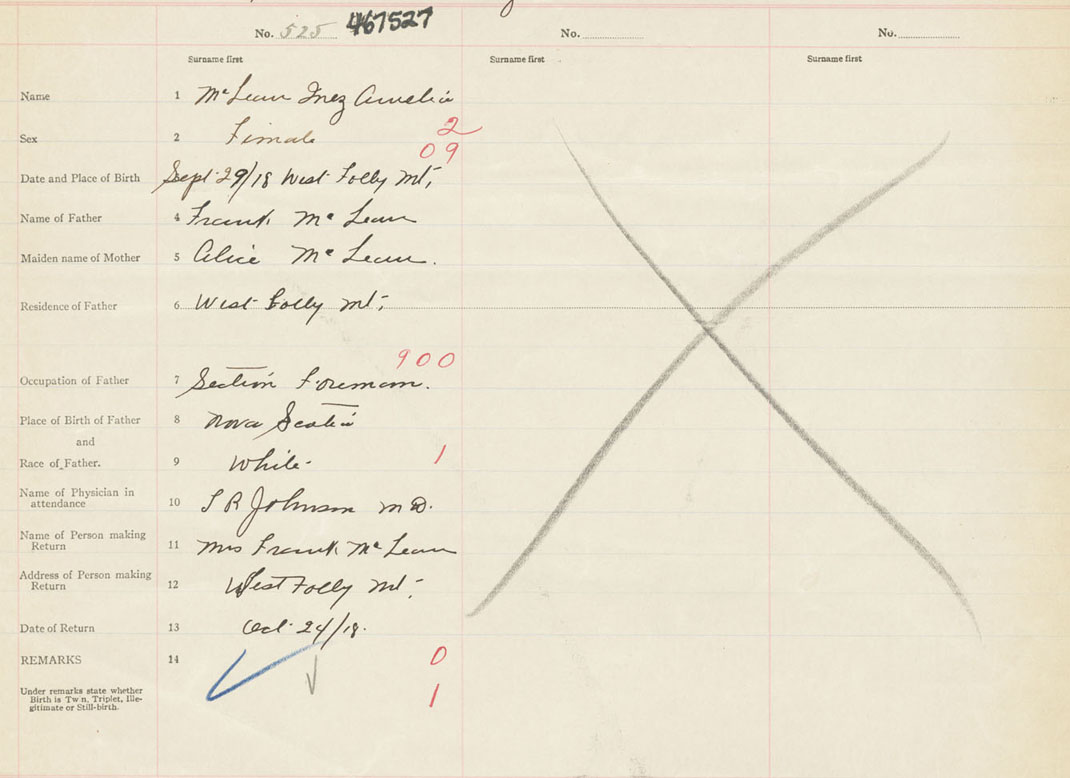 No. 525 467527 No. No.
Surname first Surname first Surname first
Name 1 McLean Inez Amelia
Sex 2 Female 2
09
Date and Place of Birth Sept 29/18 West Folly Mt,
Name of Father 4 Frank McLean
Maiden name of Mother 5 Alice McLean.
Residence of Father 6 West Folly Mt,
900
Occupation of Father 7 Section Foreman.
Place of Birth of Father 8 Nova Scotia
and
Race of Father. 9 White- 1
Name of Physician in
attendance 10 S R Johnson M D.
Name of Person making
Return 11 Mrs Frank McLean
Address of Person making
Return 12 West Folly Mt,
Date of Return 13 Oct. 24/18.
REMARKS 14 0
Under remarks state whether
Birth is Twn, Triplet, Ille-
gitimate or Still-birth. 1